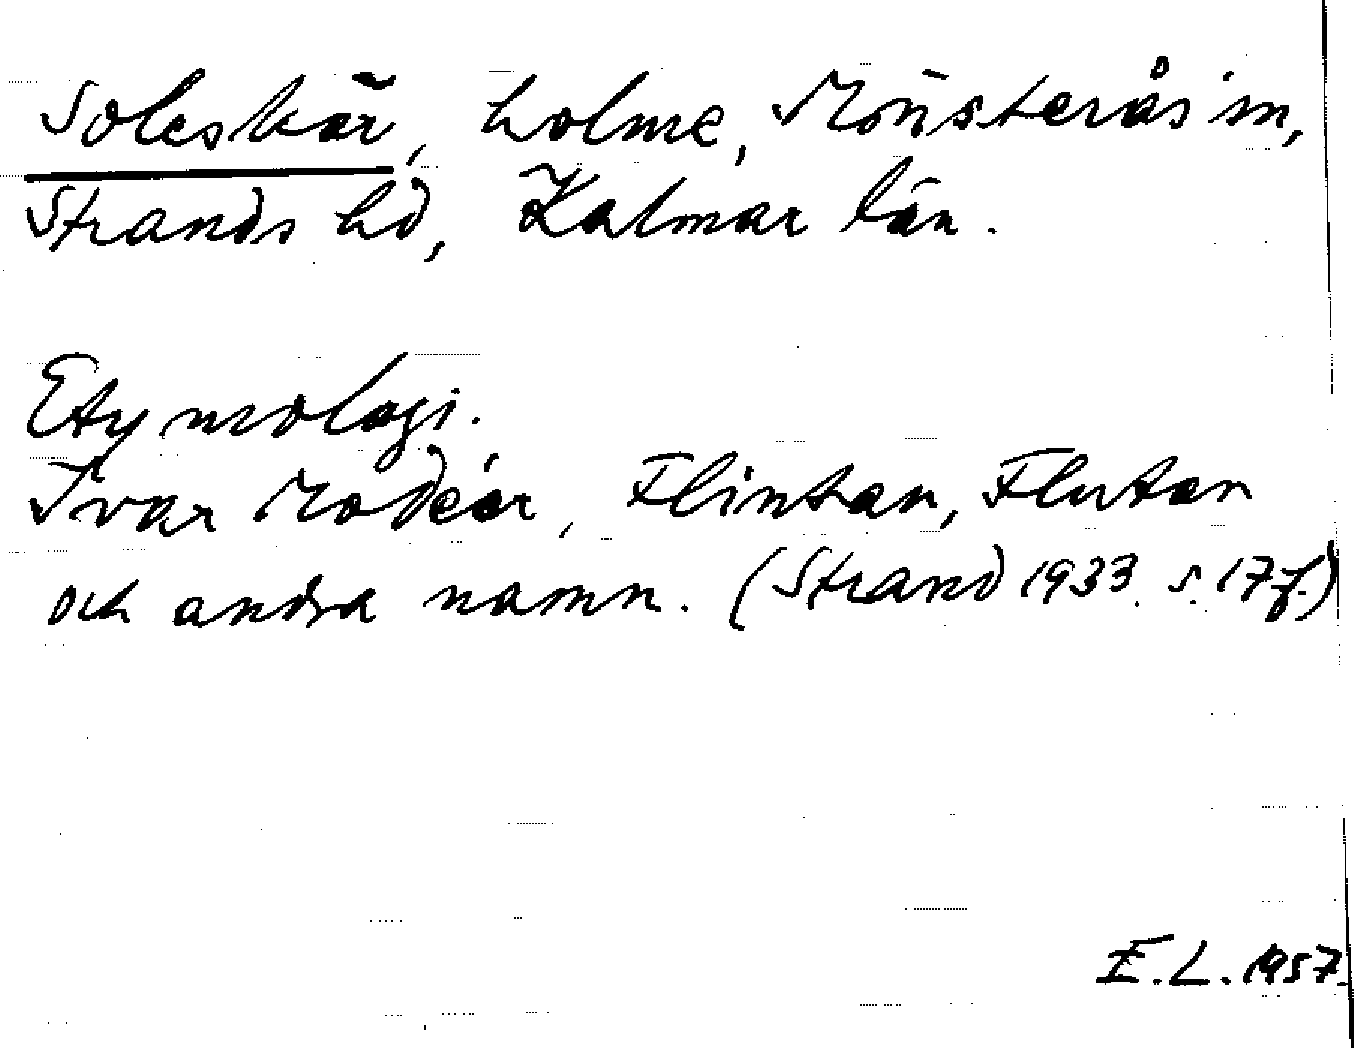 Soleskär, holme, Mönsterås sn,
Strands hd, Kalmar län.
Etymologi.
Ivar Modéer, Flintan, Flutan
och andra namn. (Strand 1933. s. 17f.)
E.L. 1957.